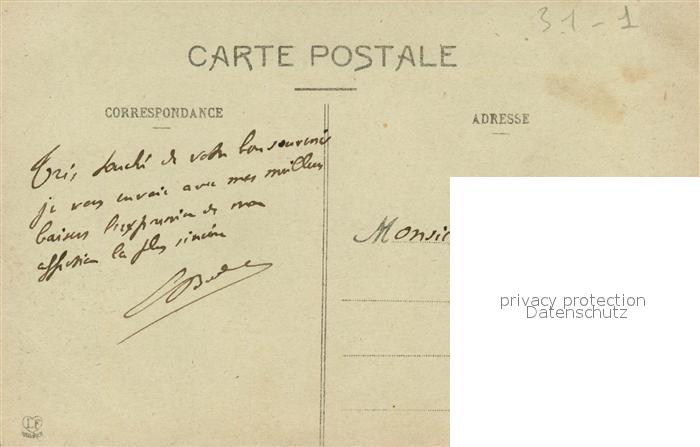 31-1
CARTE POSTALE
CORRESPONDANCE
ADRESSE
Très touché de votre bon souvenir
je vous envoie avec mes meilleurs
baisers l'expression de mon
affection la plus sincère
Monsie
privacy protection
Datenschutz
LF